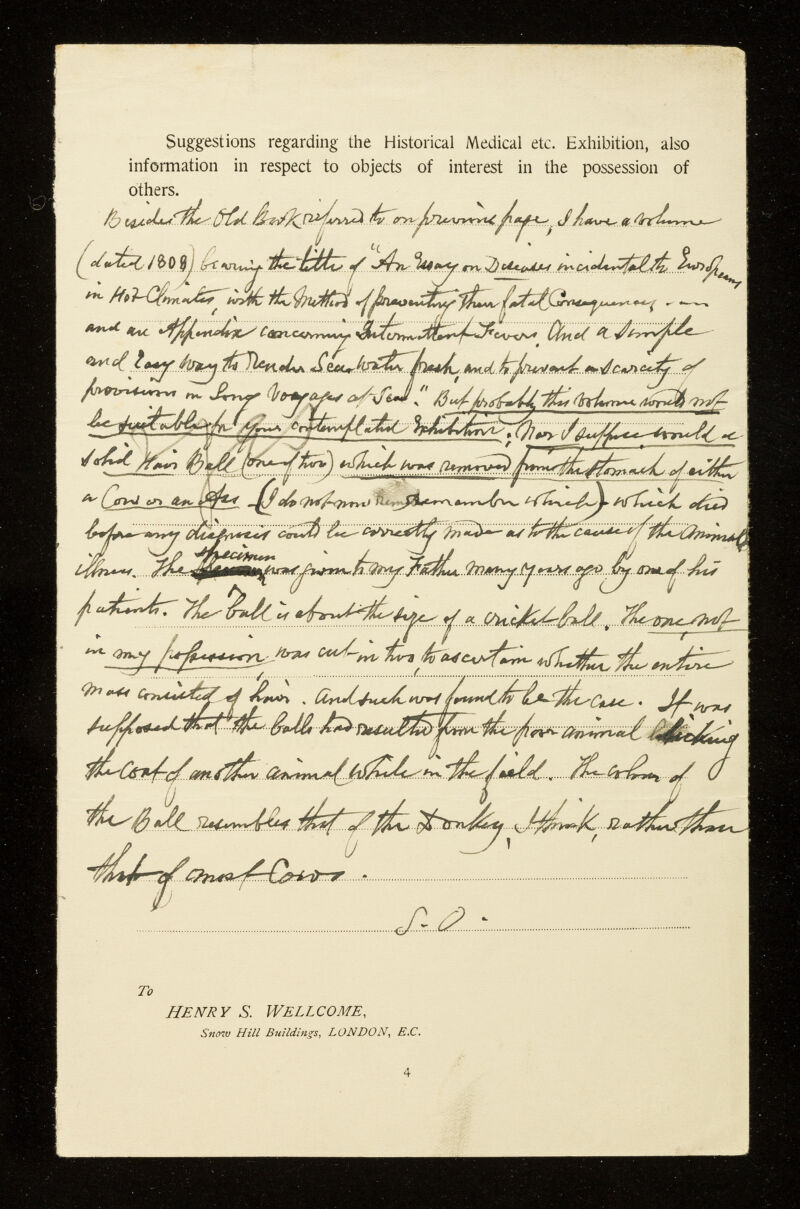 Suggestions regarding the Historical Medical etc. Exhibition, also
information in respect to objects of interest in the possession of
others.
Besides the Old Book referred to on previous page, I have a volume
(dated 1808) bearing the title of "An Essay on Diseases incidental to Europeans
in Hot Climates, with the Method of preventing their fatal Consequences, –
and an Appendix concerning Intermittent Fevers. And a Simple
and Easy way to Render Sea water fresh, and to prevent a scarcity of
provisions in Long Voyages at Sea." But probably this volume would not
be suitable for your contemplated Exhibition; Nor I suppose would a
solid Hair Ball (one of two) which was removed from the stomach of either
a Cow or an Ass – (I do not now remember which) – which died
before any diagnosis could be correctly made as to the cause of the Animal's
illness. The specimen was given to my Father many years ago by one of his
patients. The ball is about the size of a cricket ball. The one, not
in my possession, was cut in two, to ascertain whether the entire
mass consisted of hair. And such was found to be the case. It was
supposed that the balls had resulted from the poor animal licking
the coat of another animal while in the field. The colour of
the Ball resembles that of the Donkey, I think, rather than
that of most Cows.
S. O.
To
HENRY S. WELLCOME,
Snow Hill Buildings, LONDON, E.C.
4